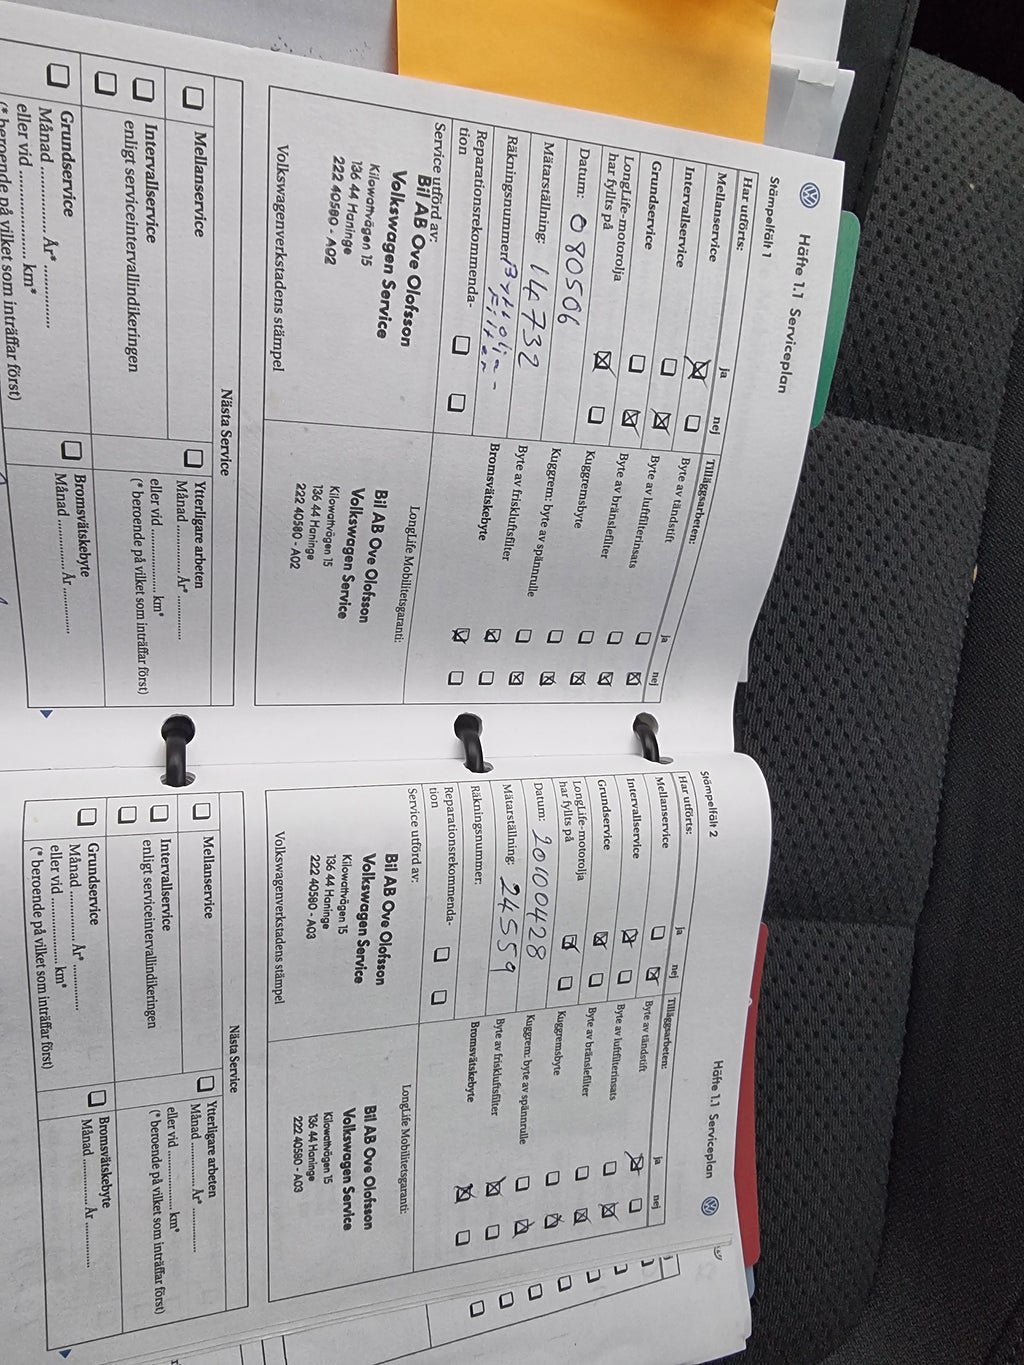 Häfte 1.1 Serviceplan
Stämpelfält 1
Har utförts:
ja
nej
Mellanservice
Intervallservice
Grundservice
LongLife-motorolja
har fyllts på
Datum: 080506
Mätarställning: 14732
Räkningsnummer: Byt olja-
filter
Reparationsrekommenda-
tion
Service utförd av:
Bil AB Ove Olofsson
Volkswagen Service
Kilowattvägen 15
136 44 Haninge
222 40580 - A02
Volkswagenverkstadens stämpel
Tilläggsarbeten:
ja
nej
Byte av tändstift
Byte av luftfilterinsats
Byte av bränslefilter
Kuggremsbyte
Kuggrem: byte av spännrulle
Byte av friskluftsfilter
Bromsvätskebyte
LongLife Mobilitetsgaranti:
Bil AB Ove Olofsson
Volkswagen Service
Kilowattvägen 15
136 44 Haninge
222 40580 - A02
Nästa Service
Mellanservice
Intervallservice
enligt serviceintervallindikeringen
Grundservice
Månad .............. År* ..............
eller vid .................... km*
(* beroende på vilket som inträffar först)
Ytterligare arbeten
Månad .............. År* ..............
eller vid .................... km*
(* beroende på vilket som inträffar först)
Bromsvätskebyte
Månad .............. År ..............
Häfte 1.1 Serviceplan
Stämpelfält 2
Har utförts:
ja
nej
Mellanservice
Intervallservice
Grundservice
LongLife-motorolja
har fyllts på
Datum: 20100428
Mätarställning: 24559
Räkningsnummer:
Reparationsrekommenda-
tion
Service utförd av:
Bil AB Ove Olofsson
Volkswagen Service
Kilowattvägen 15
136 44 Haninge
222 40580 - A03
Volkswagenverkstadens stämpel
Tilläggsarbeten:
ja
nej
Byte av tändstift
Byte av luftfilterinsats
Byte av bränslefilter
Kuggremsbyte
Kuggrem: byte av spännrulle
Byte av friskluftsfilter
Bromsvätskebyte
LongLife Mobilitetsgaranti:
Bil AB Ove Olofsson
Volkswagen Service
Kilowattvägen 15
136 44 Haninge
222 40580 - A03
Nästa Service
Mellanservice
Intervallservice
enligt serviceintervallindikeringen
Grundservice
Månad .............. År* ..............
eller vid .................... km*
(* beroende på vilket som inträffar först)
Ytterligare arbeten
Månad .............. År* ..............
eller vid .................... km*
(* beroende på vilket som inträffar först)
Bromsvätskebyte
Månad .............. År ..............